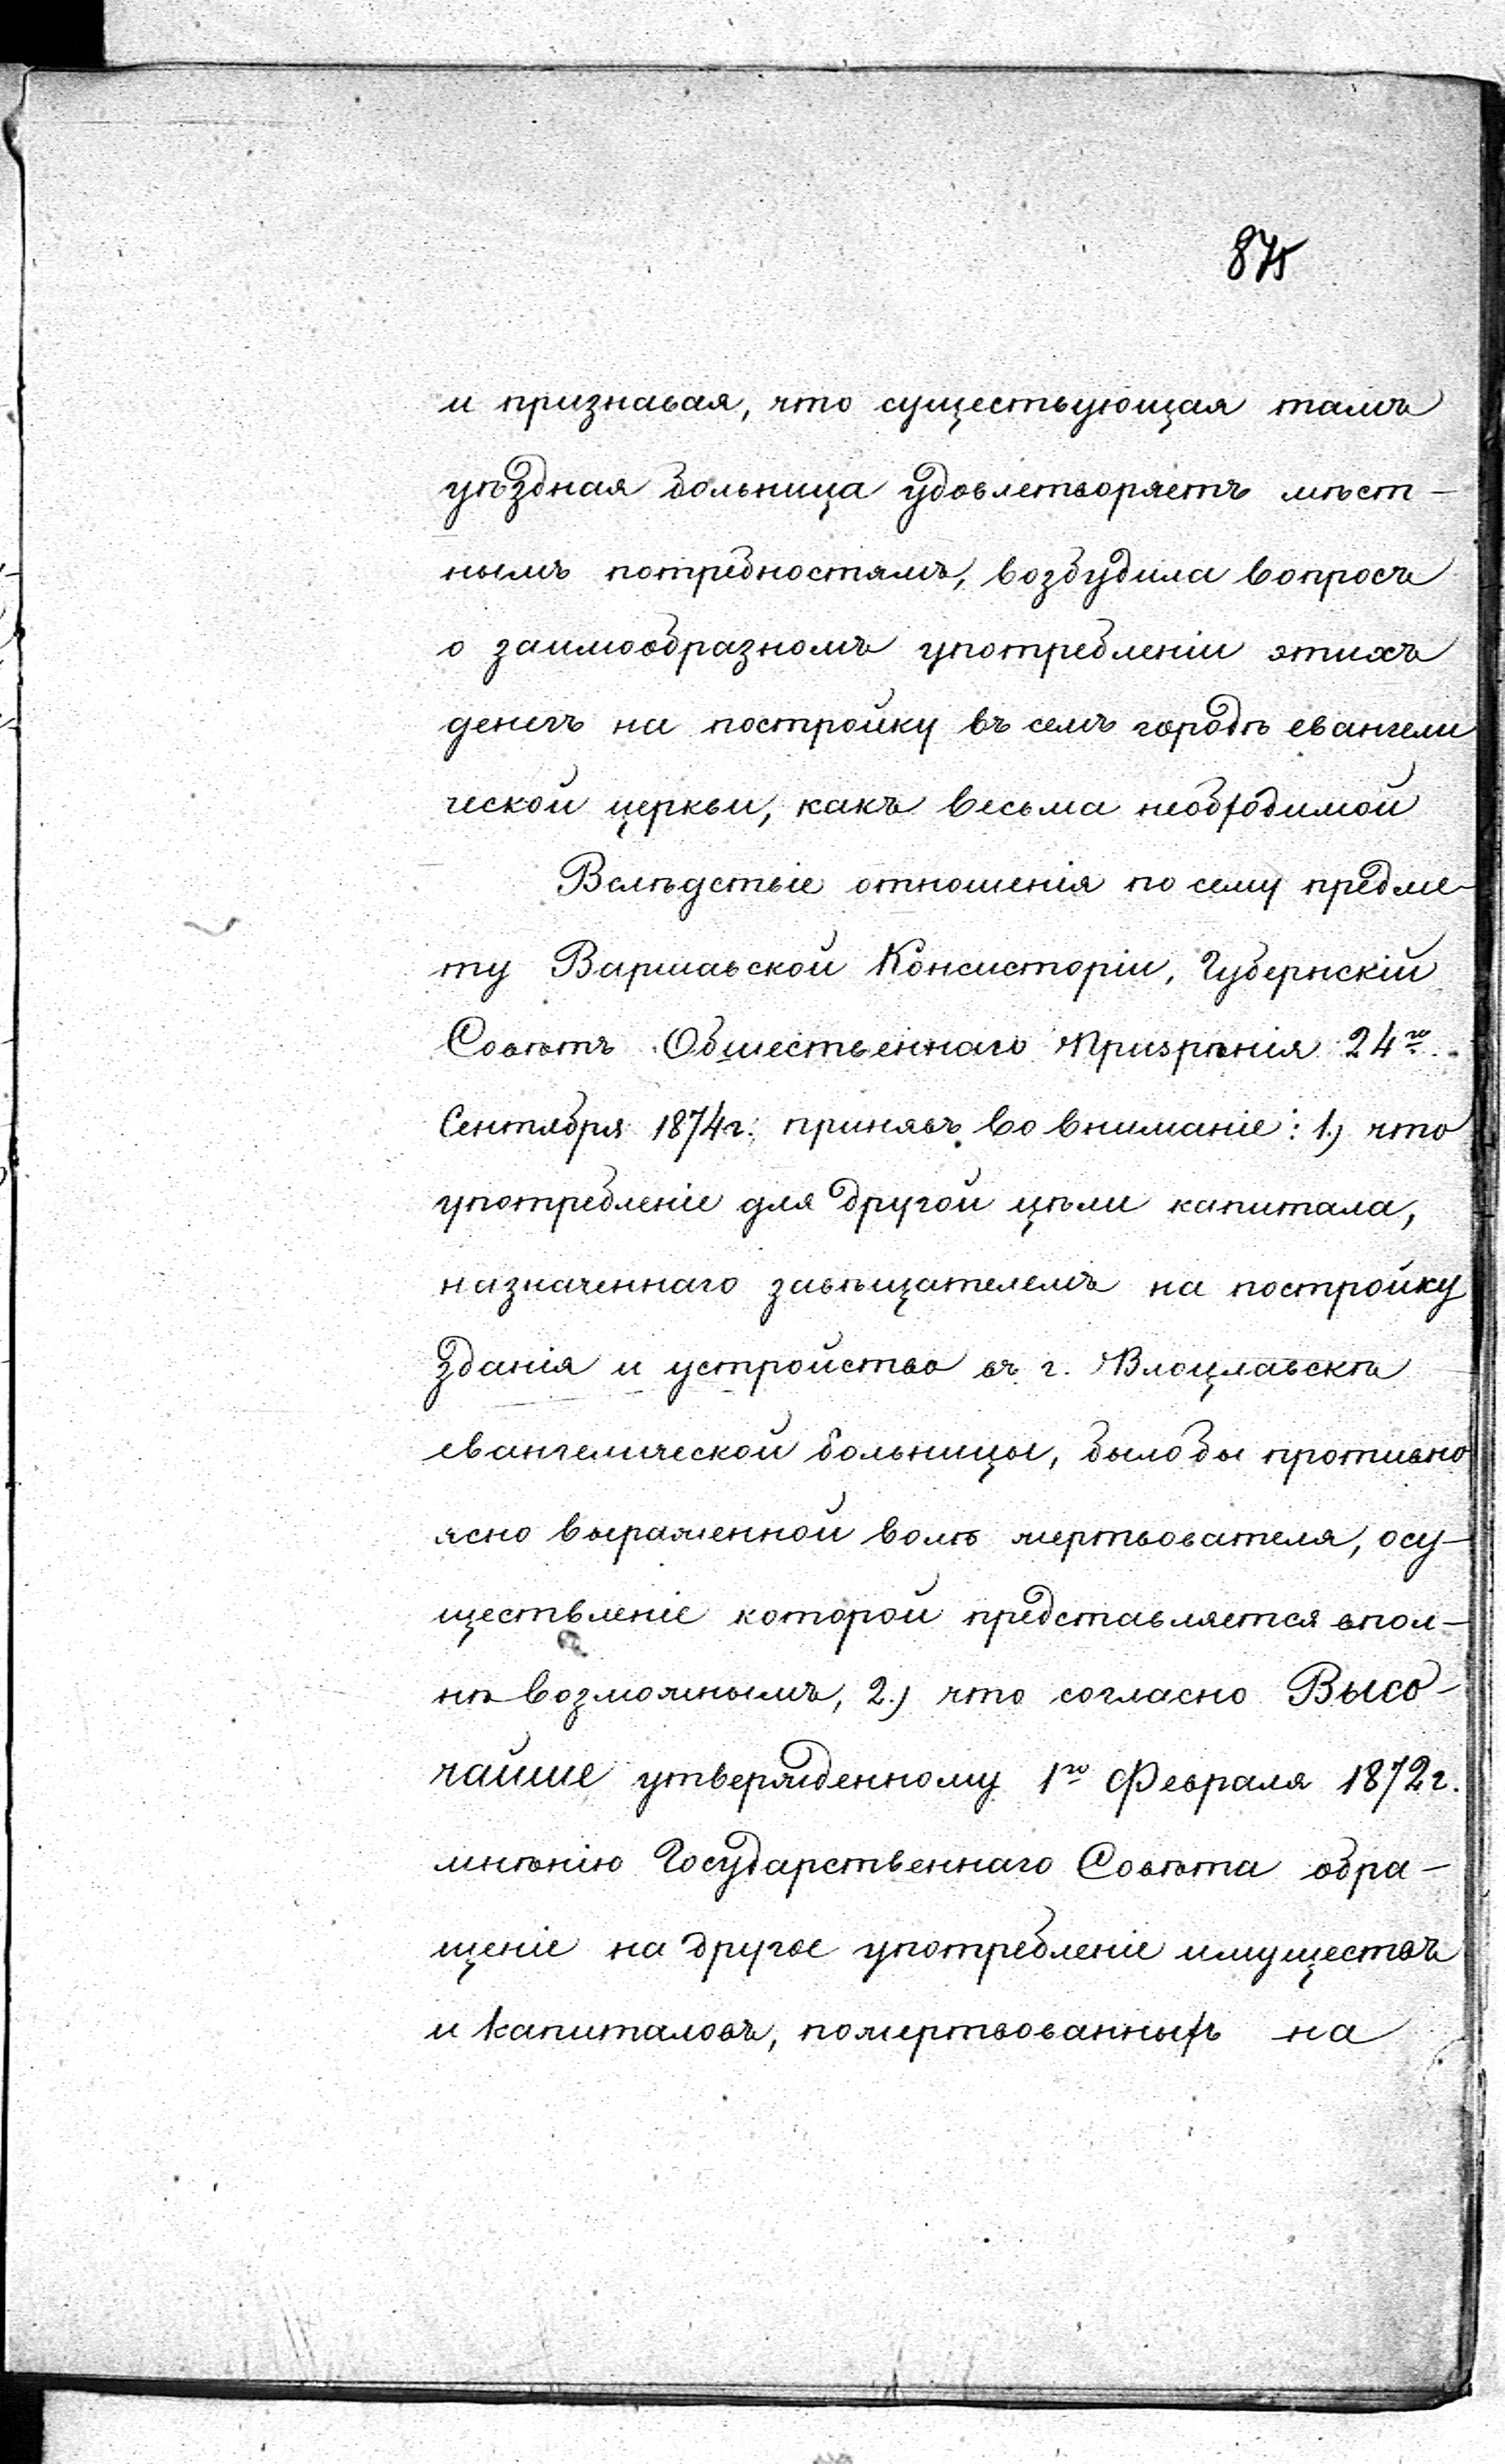 875
и признавая, что существующая тамъ
уѣздная больница удовлетворяетъ мѣст-
нымъ потребностямъ, возбудила вопросъ
о заимообразномъ употребленіи этихъ
денегъ на постройку въ семъ городѣ евангели
ческой церкви, какъ весьма необходимой
Вслѣдствіе отношенія по сему предме-
ту Варшавской Консисторіи, Губернскій
Совѣтъ Общественнаго Призрѣнія 24го
Сентября 1874г. принявъ во вниманіе: 1.) что
употребленіе для другой цѣли капитала,
назначеннаго завѣщателемъ на постройку
зданія и устройство въ г. Влоцлавскѣ
евангелической больницы, было бы противно
ясно выраженной волѣ жертвователя, осу-
ществленіе которой представляется впол-
нѣ возможнымъ, 2.) что согласно Высо-
чайше утвержденному 1го Февраля 1872г.
мнѣнію Государственнаго Совѣта обра-
щеніе на другое употребленіе имуществъ
и капиталовъ, пожертвованныхъ на